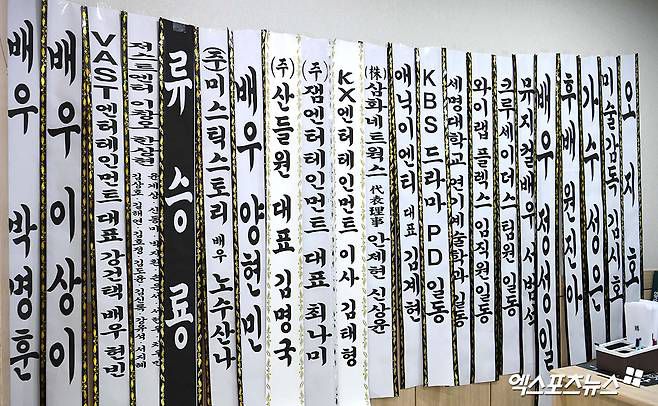 배우 박병훈
배우 이상이
VAST엔터테인먼트 대표 강건택 배우 현빈
류승룡
(주)미스틱스토리 배우 노수산나
배우 양현빈
(주)산들원 대표 김명국
(주)잼엔터테인먼트 대표 최나미
KX엔터테인먼트 이사 김태형
(株)삼화네트웍스 代表理事 안제현 신상윤
애닉이엔티 대표 김계현
KBS 드라마 PD 일동
세명대학교 연기예술학과 일동
와이랩 플렉스 임직원일동
크루세이더스팀원 일동
뮤지컬배우 서범석
배우 정성일
후배 원진아
가수 성은
미술감독 김시호
오지호
엑스포츠뉴스